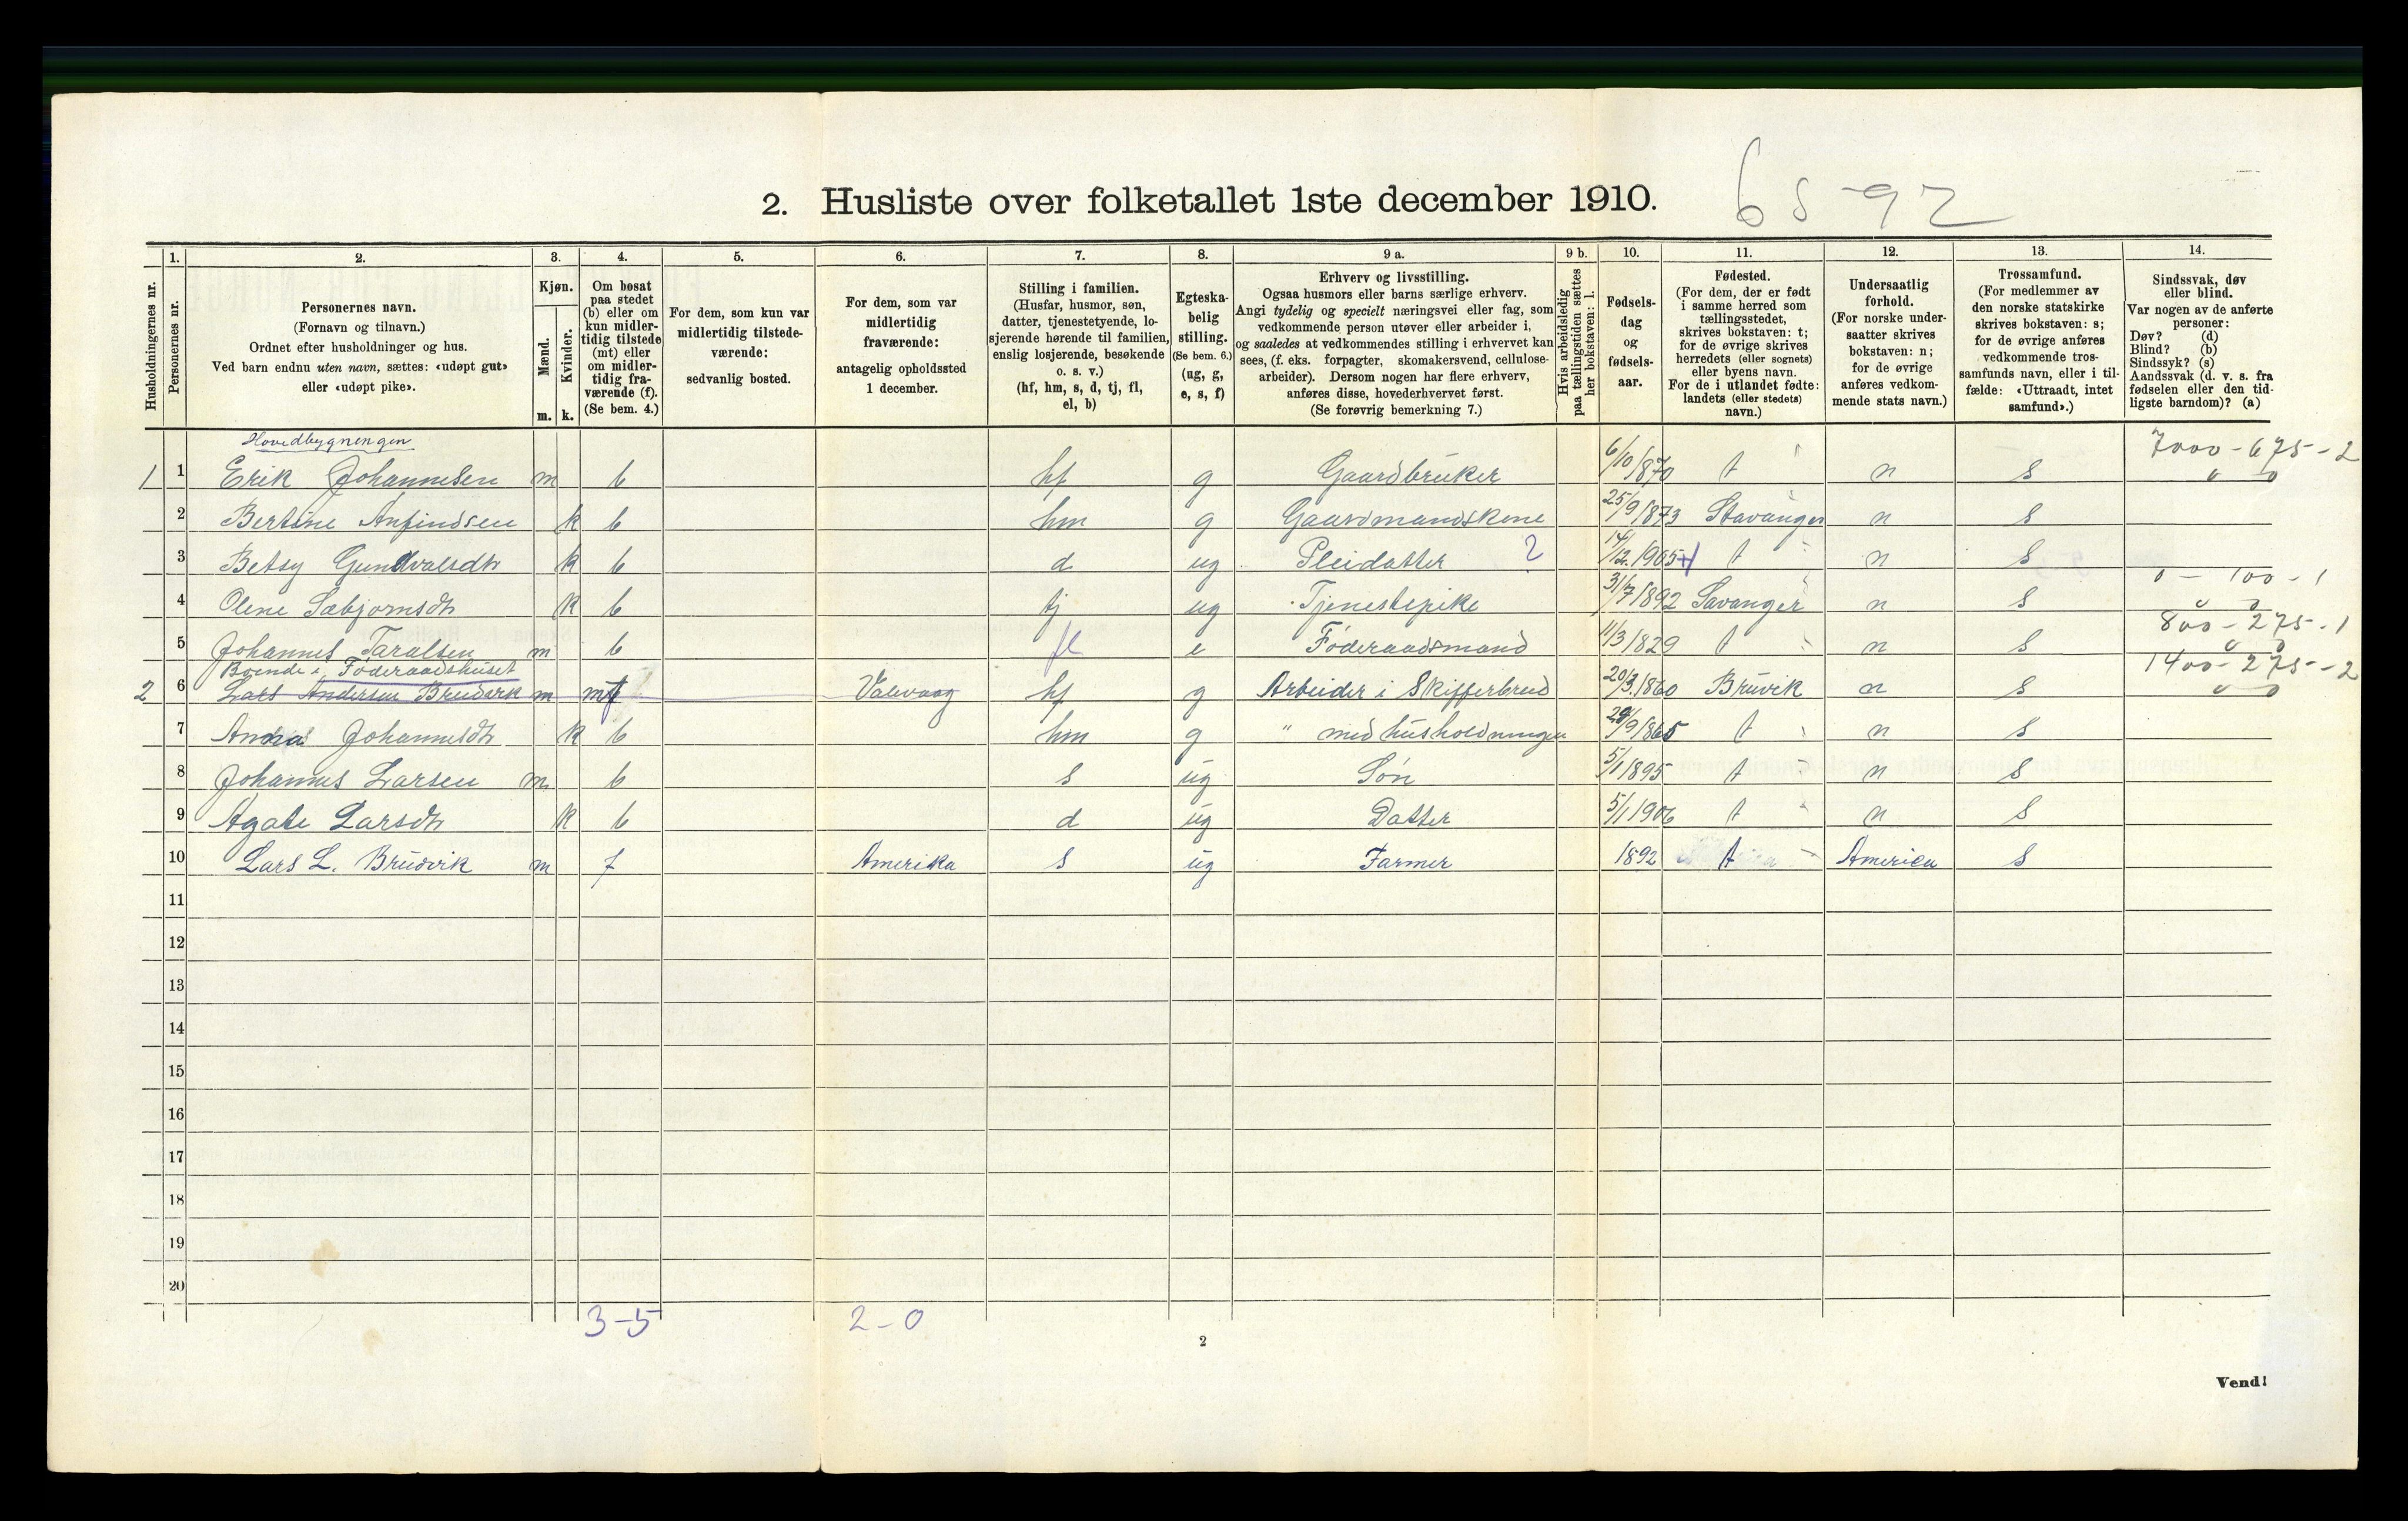 2. Husliste over folketallet 1ste december 1910. 6 s - 92
Husholdningernes nr.
1. Personernes nr.
2. Personernes navn. (Fornavn og tilnavn.) Ordnet efter husholdninger og hus. Ved barn endnu uten navn, sættes: «udøpt gut» eller «udøpt pike».
3. Kjøn. Mænd. m. Kvinder. k.
4. Om bosat paa stedet (b) eller om kun midlertidig tilstede (mt) eller om midlertidig fraværende (f). (Se bem. 4.)
5. For dem, som kun var midlertidig tilstedeværende: sedvanlig bosted.
6. For dem, som var midlertidig fraværende: antagelig opholdssted 1 december.
7. Stilling i familien. (Husfar, husmor, søn, datter, tjenestetyende, losjerende hørende til familien, enslig losjerende, besøkende o. s. v.) (hf, hm, s, d, tj, fl, el, b)
8. Egteskabelig stilling. (Se bem. 6.) (ug, g, e, s, f)
9 a. Erhverv og livsstilling. Ogsaa husmors eller barns særlige erhverv. Angi tydelig og specielt næringsvei eller fag, som vedkommende person utøver eller arbeider i, og saaledes at vedkommendes stilling i erhvervet kan sees, (f. eks. forpagter, skomakersvend, cellulosearbeider). Dersom nogen har flere erhverv, anføres disse, hovederhvervet først. (Se forøvrig bemerkning 7.)
9 b. Hvis arbeidsledig paa tællingstiden sættes her bokstaven: l.
10. Fødselsdag og fødselsaar.
11. Fødested. (For dem, der er født i samme herred som tællingsstedet, skrives bokstaven: t; for de øvrige skrives herredets (eller sognets) eller byens navn. For de i utlandet fødte: landets (eller stedets) navn.)
12. Undersaatlig forhold. (For norske undersaatter skrives bokstaven: n; for de øvrige anføres vedkommende stats navn.)
13. Trossamfund. (For medlemmer av den norske statskirke skrives bokstaven: s; for de øvrige anføres vedkommende trossamfunds navn, eller i tilfælde: «Uttraadt, intet samfund».)
14. Sindssvak, døv eller blind. Var nogen av de anførte personer: Døv? (d) Blind? (b) Sindssyk? (s) Aandssvak (d. v. s. fra fødselen eller den tidligste barndom)? (a)
Hovedbygningen 7000 - 675 - 2
1 1 Erik Johannesen m b hf g Gaardbruker 6/10/870 t n s
2 Bertine Anfindsen k b hm g Gaardmandskone 25/9/873 Stavanger n s
3 Betsy Gundvalsdtr k b d ug Pleidatter ? 14/12.1905 t n s
0 - 100 - 1
4 Olene Sæbjørnsdtr k b tj ug Tjenestepike 31/7/1892 Savanger n s
800 - 275 - 1
5 Johannes Taralsen m b fl e Føderaadsmand 11/3/1829 t n s
Boende i Føderaadshuset 1400 - 275 - 2
2 6 Lars Andersen Brudvik m mt f Valevaag hf g Arbeider i Skifferbrud 20/3.1860 Bruvik n s
7 Anna Johannesdtr k b hm g " med husholdningen 29/9/865 t n s
8 Johannes Larsen m b s ug Søn 5/1 1895 t n s
9 Agate Larsdtr k b d ug Datter 5/1 1906 t n s
10 Lars L. Brudvik m f Amerika s ug Farmer 1892 t America s
11
12
13
14
15
16
17
18
19
20
3-5 2-0
2
Vend!